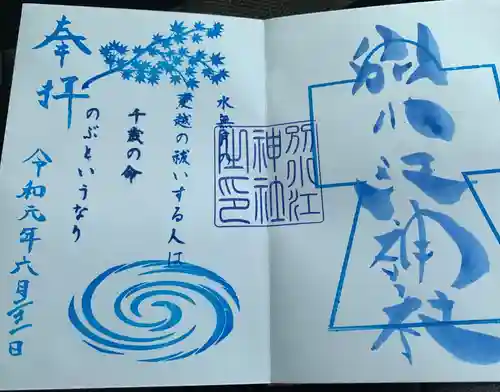 別小江神社
別小江
神社
之印
水無月の
夏越の祓いする人は
千歳の命
のぶというなり
奉拝
令和元年六月 一日